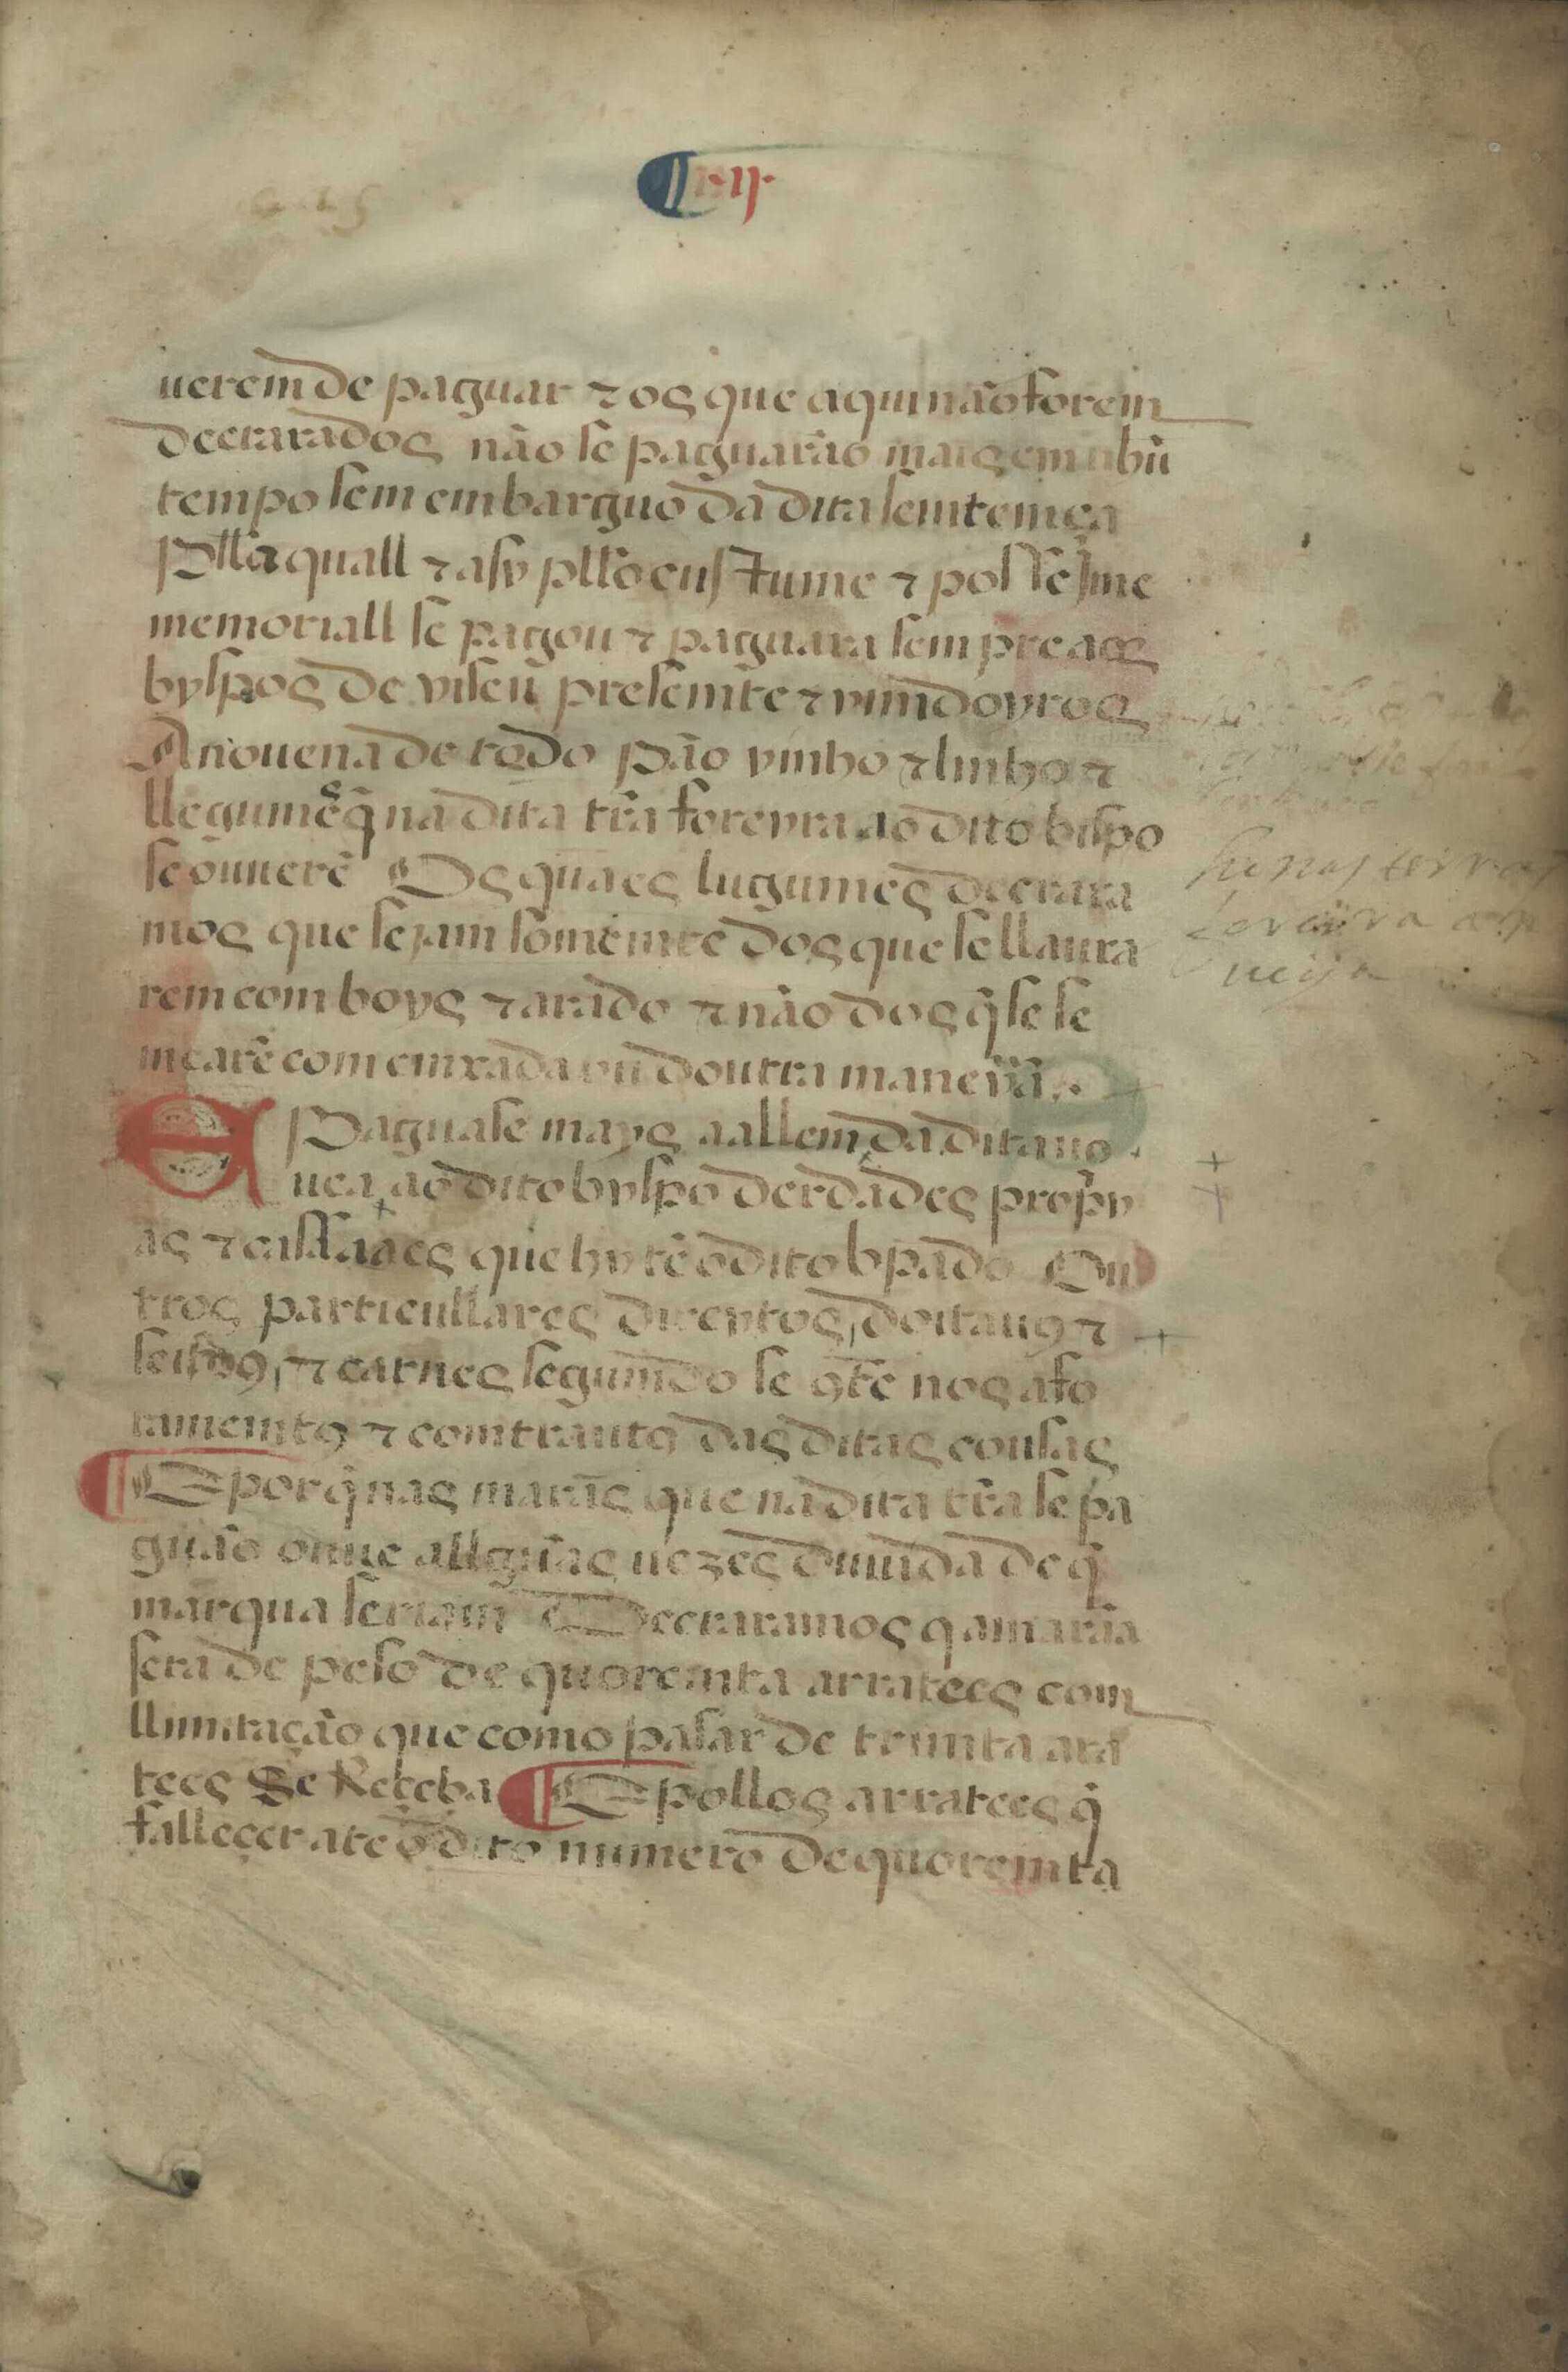 ¶ ·ij·
uerem de paguar ⁊ os que aqui não forem
decrarados não se paguarão mais em nhuũ
tempo sem embarguo da dita semtemça
Plla quall ⁊ asy pllo custume ⁊ posse jme
memoriall se pagou ⁊ paguara sempre aos
byspos de viseu presemte ⁊ vimdoyros
A nouena de todo pão vinho ⁊ linho ⁊
llegumes q̃ na dita trã foreyra ao dito bispo
se ouuerẽ Os quaes lugumes decrara
mos que sejam somemte dos que se llaura
rem com boys ⁊ arado ⁊ não dos q̃ se se
mearẽ com emxada ou doutra maneyra.
E Paguase mays aallem da dita no
uea ao dito byspo derdades propy
as ⁊ casaaes que hy tẽ o dito bpado Ou
tros particullares direytos, doitauos ⁊
seistos, ⁊ carnes segumdo se cõtẽ nos afo
ramemtos ⁊ comtrautos das ditas cousas
¶ E por q̃ nas marãs que na dita trã se pa
guão ouue allguãs uezes duuida de q̃
marqua seriam Decraramos q̃ a marãa
sera de peso de quoremta arratees com
llimitação que como pasar de trimta ara
tees Se Receba ¶ E pollos arratees q̃
falleçer ate o dito numero de quoremta
nas terras